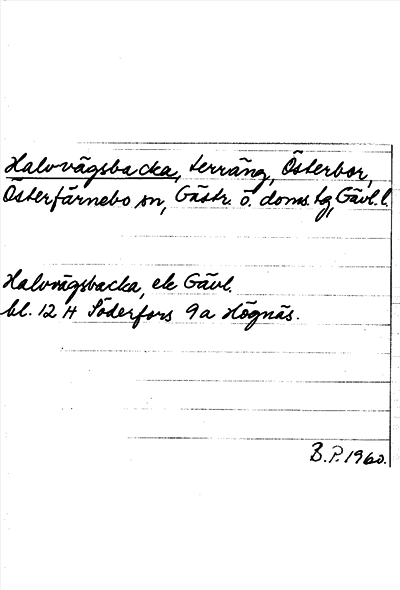 Halvvägsbacka, terräng, Österbor,
Österfärnebo sn, Gästr. ö. doms. tg, Gävl. l.
Halvvägsbacka, ek Gävl.
bl. 12 H Söderfors 9a Högnäs.
B.P. 1960.